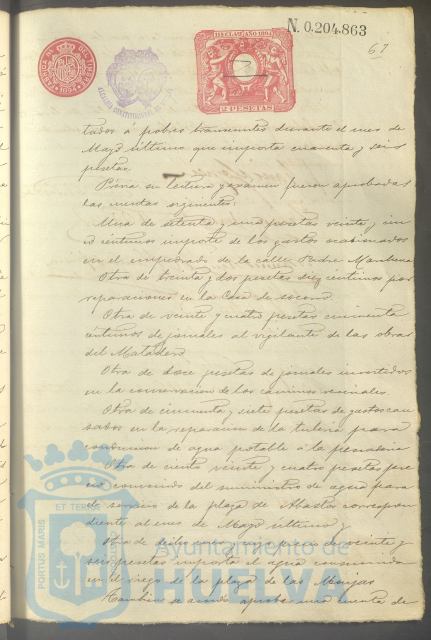 N. 0.204.863
67
FABRICA NL DEL TIMBRE
1894
ALCALDIA CONSTITUCIONAL DE
11ª CLASE AÑO 1894
2 PESETAS
tados á pobres transeuntes durante el mes de
Mayo último que importa cuarenta y seis
pesetas.
Previa su lectura y examen fueron aprobadas
las cuentas siguientes:
Una de setenta y una pesetas veinte y cin
co céntimos importe de los gastos ocasionados
en el empedrado de la calle Padre Marchena
Otra de treinta y dos pesetas diez céntimos por
reparaciones en la Casa de socorro
Otra de veinte y cuatro pesetas cincuenta
céntimos de jornales al vigilante de las obras
del Matadero
Otra de doce pesetas de jornales invertidos
en la conservacion de los caminos vecinales
Otra de cincuenta y siete pesetas de gastos cau
sados en la reparacion de la tuberia para
conduccion de agua potable á la
Otra de ciento veinte y cuatro pesetas pre
cio convenido del suministro de agua para
el servicio de la plaza de Abastos correspon
diente al mes de Mayo último y
Otra de veinte y
seis pesetas importe el agua consumida
en el riego de la plaza de las Monjas
Tambien se acordó aprobar una cuenta de
PORTUS MARIS
ET TERRE
Ayuntamiento de
HUELVA